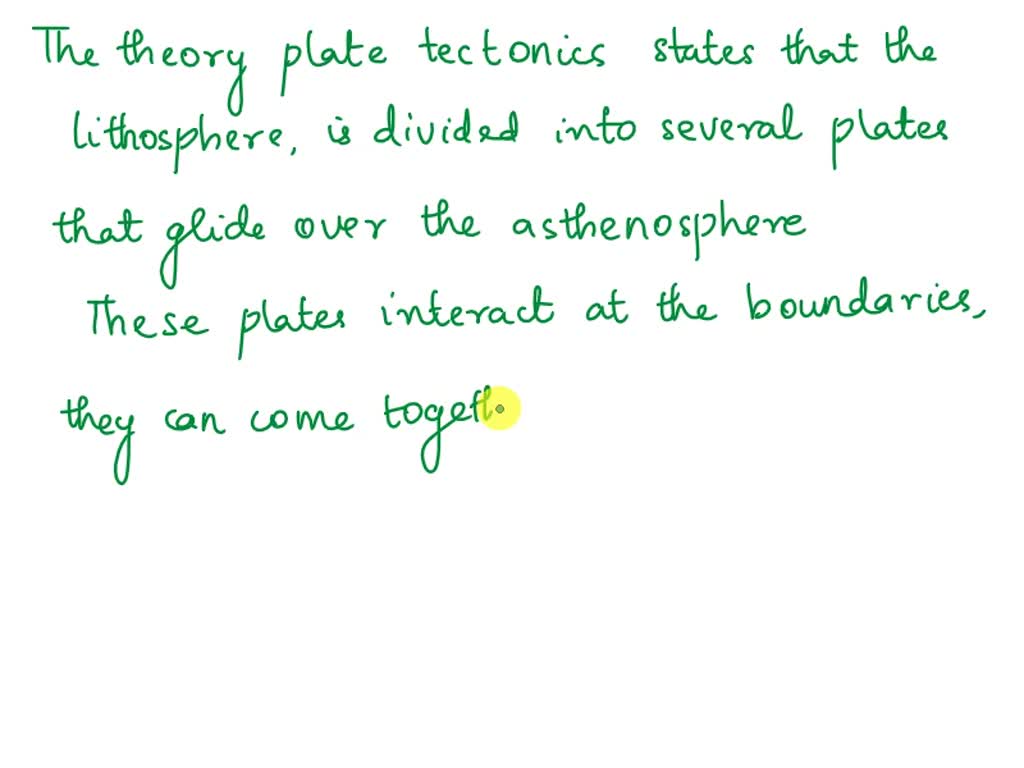 The theory plate tectonics states that the
lithosphere, is divided into several plates
that glide over the asthenosphere
These plates interact at the boundaries,
they can come togeth